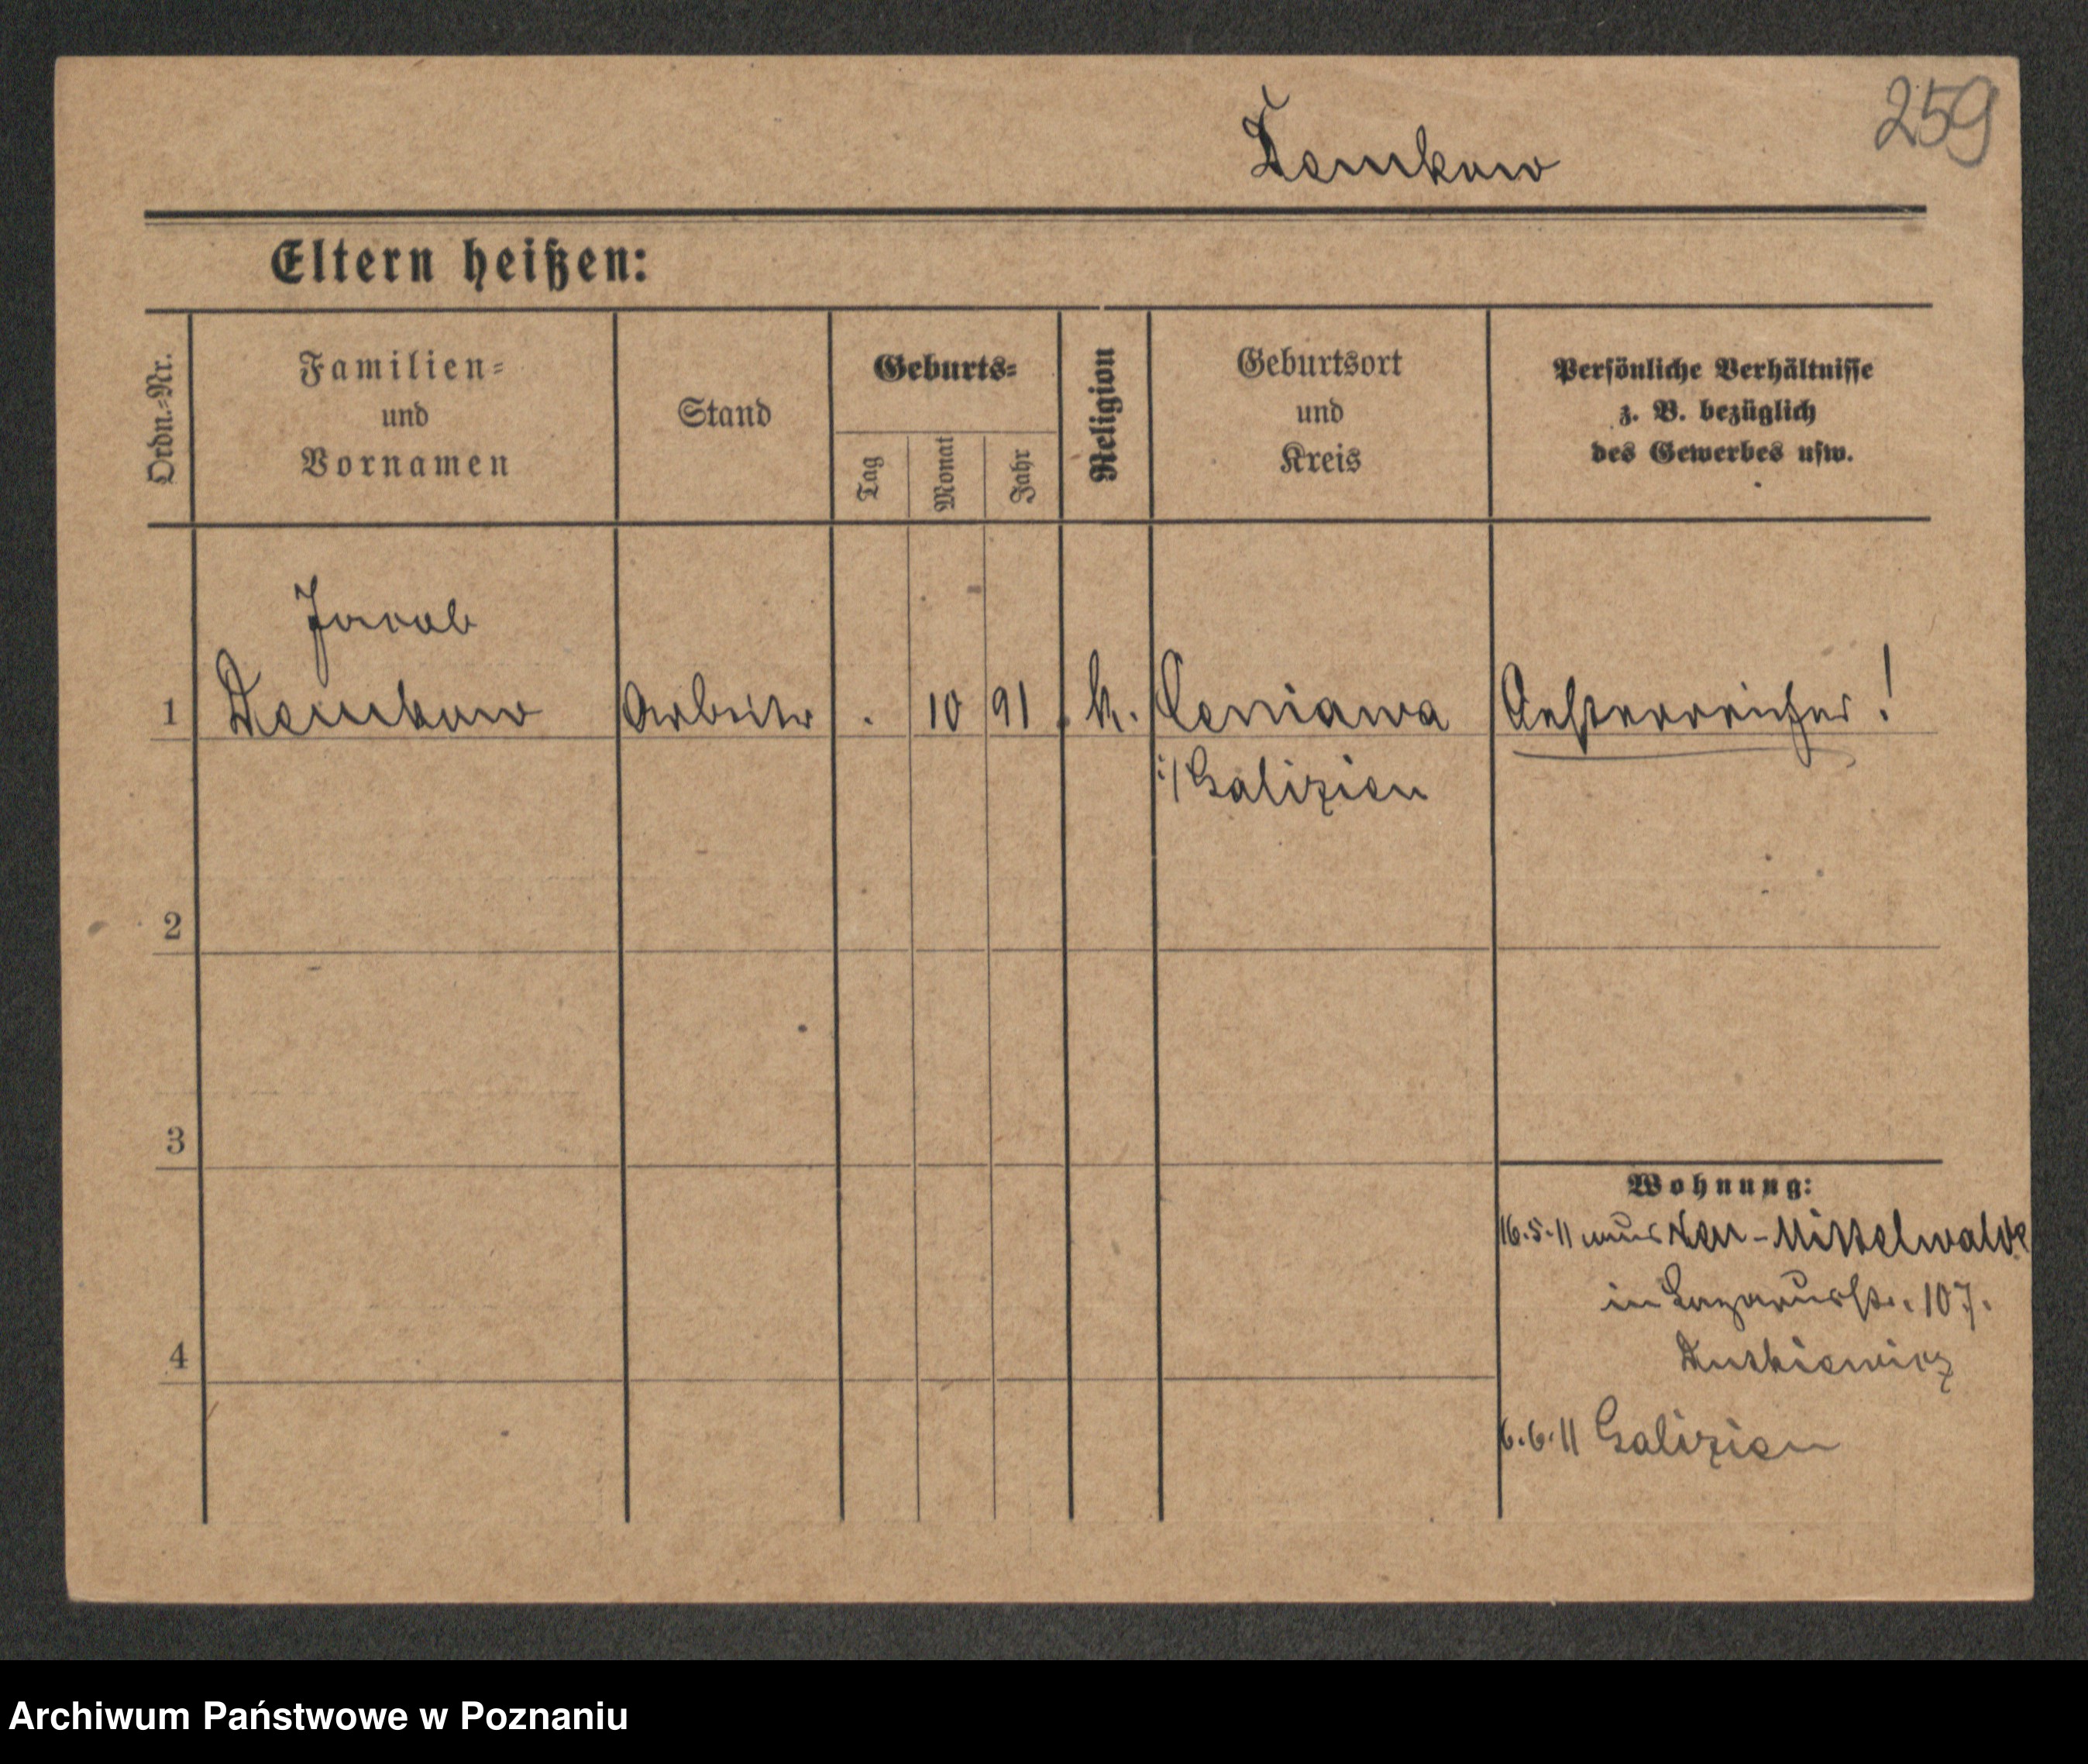 259
Demkow
Eltern heißen:
Ordn.-Nr.
Familien-
und
Vornamen
Stand
Geburts-
Tag
Monat
Jahr
Religion
Geburtsort
und
Kreis
Persönliche Verhältnisse
z. B. bezüglich
des Gewerbes usw.
Jacob
1 Demkow Arbeiter . 10 91. k. Ceniawa Oesterreicher!
i/Galizien
2
3
4
Wohnung:
16.5.11 aus Neu-Mittelwalde
in Lazarusstr. 107.
6.6.11 Galizien
Archiwum Państwowe w Poznaniu